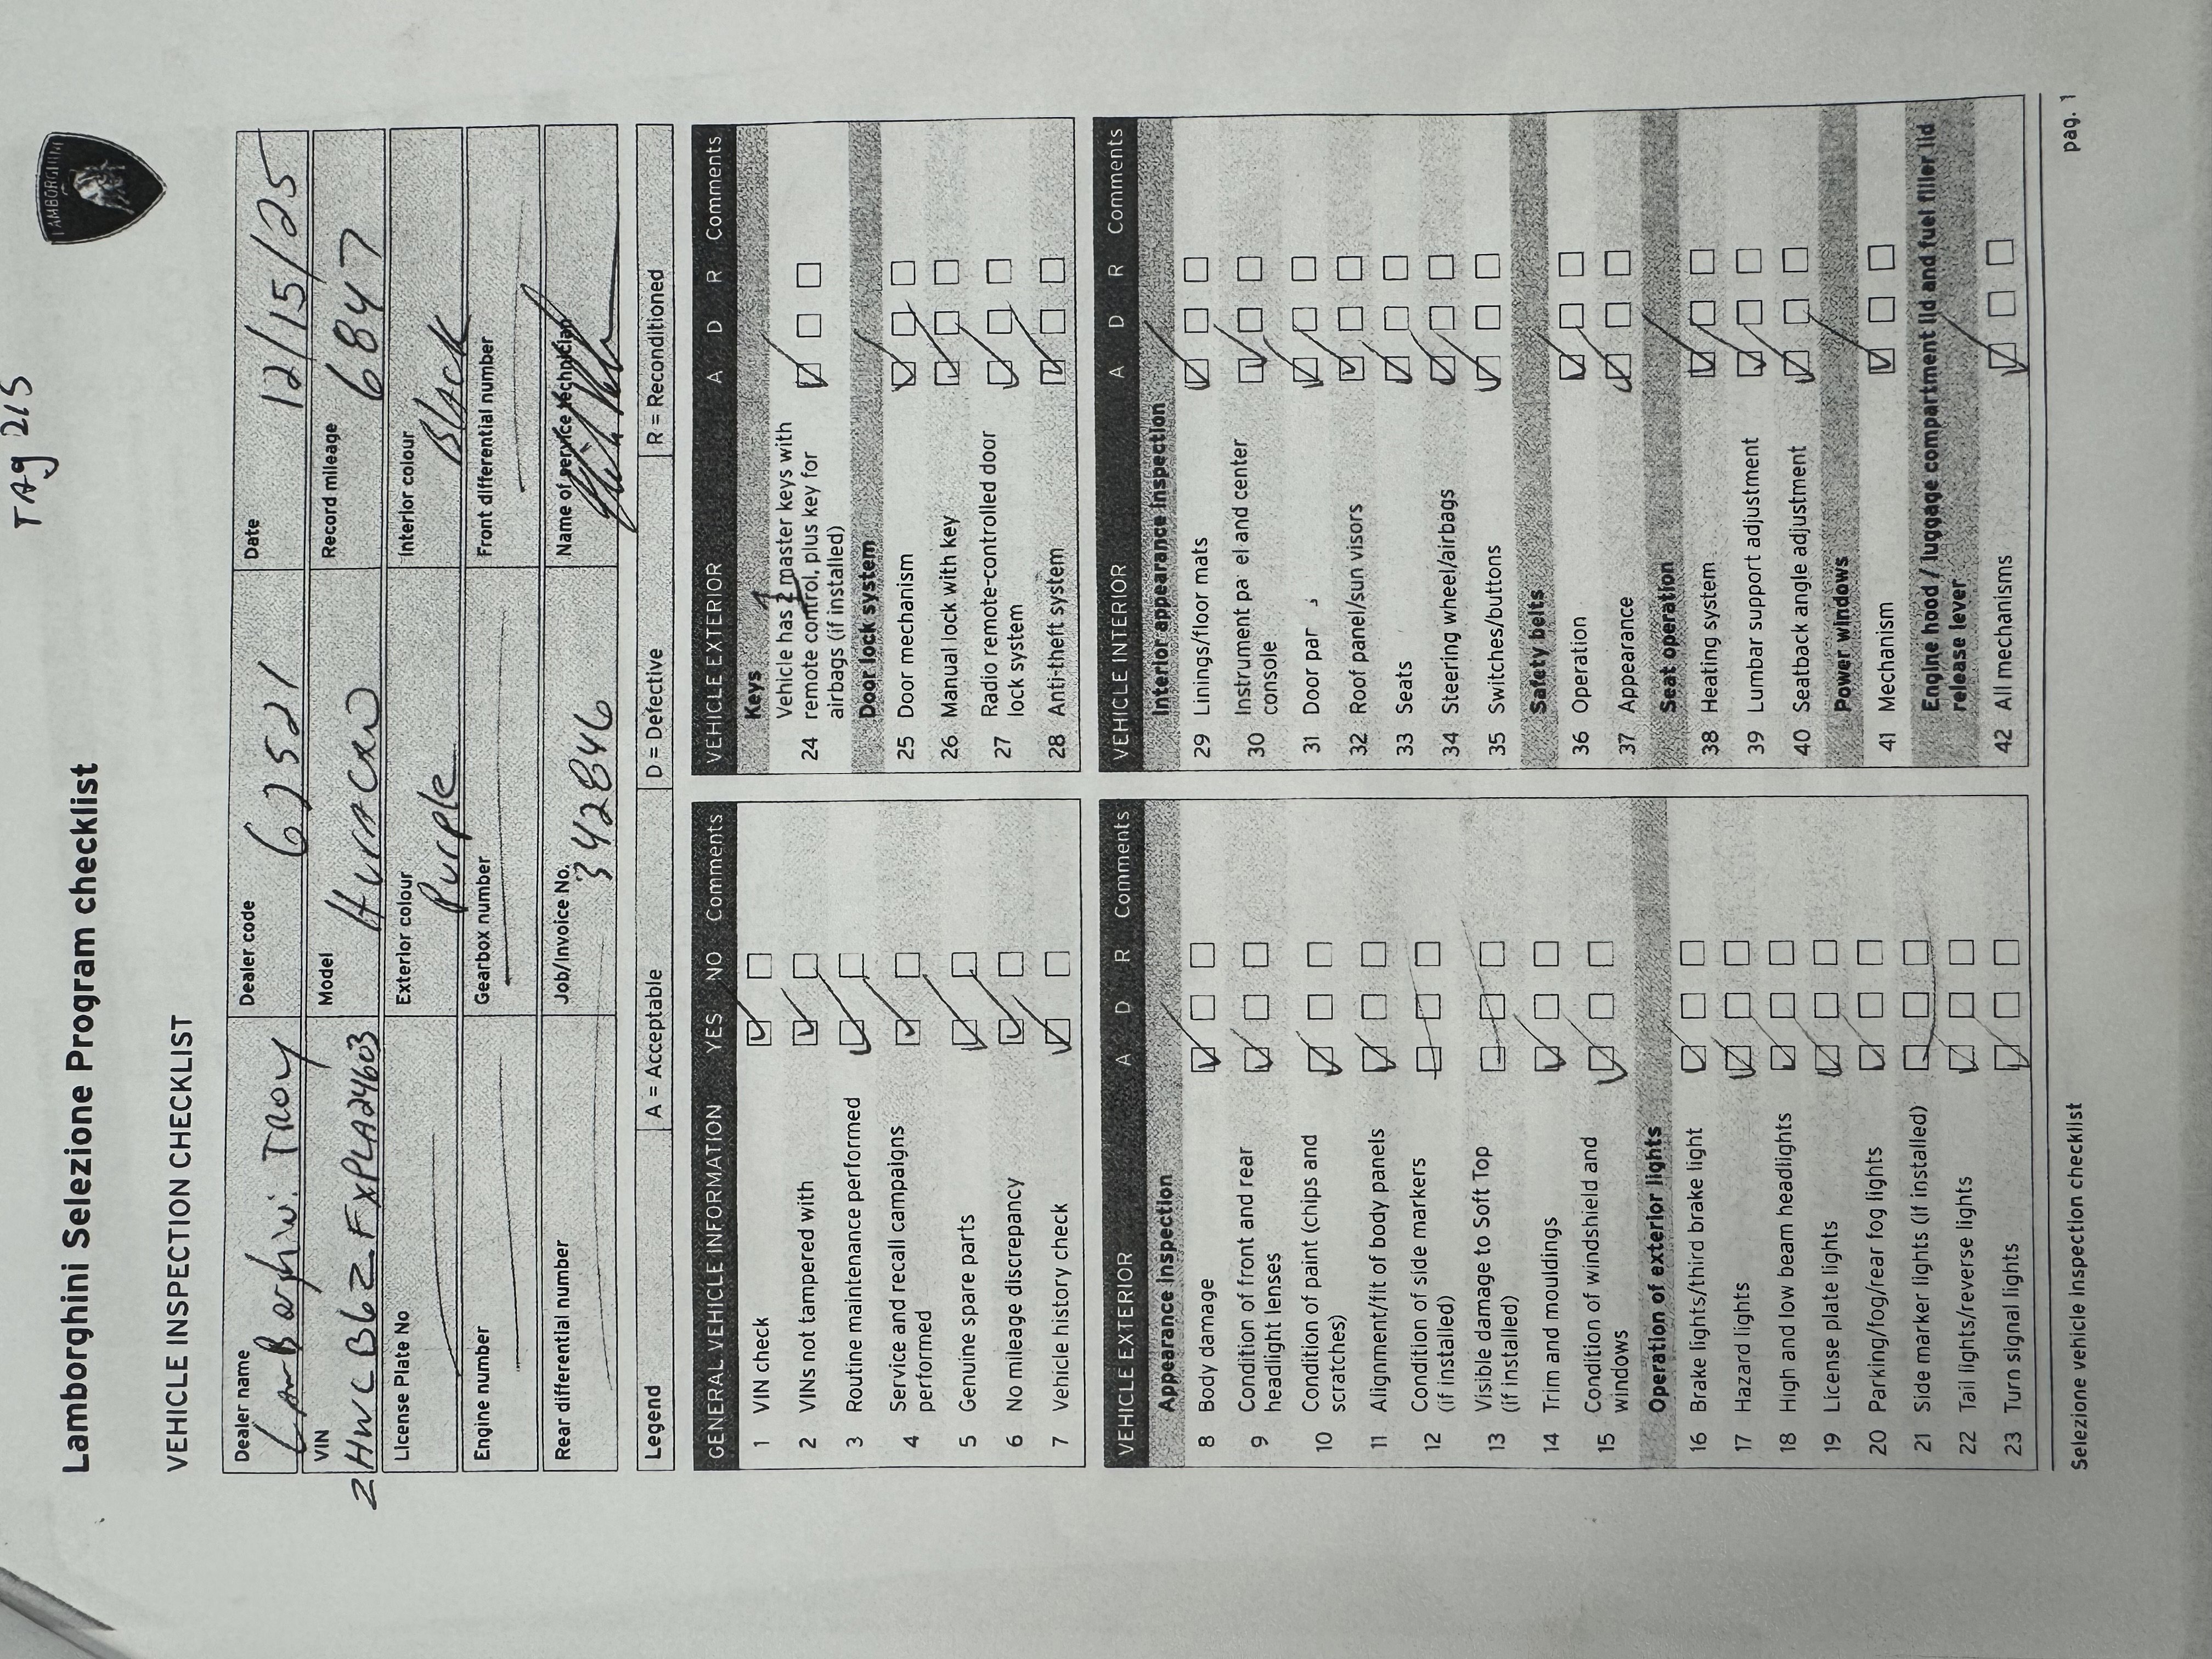 TAg 215
LAMBORGHINI
Lamborghini Selezione Program checklist
VEHICLE INSPECTION CHECKLIST
Dealer name LamBorghini Troy Dealer code 62521 Date 12/15/25
VIN ZHWCB6ZFXPLA24603 Model Huracan Record mileage 6847
License Plate No Exterior colour Purple Interior colour Black
Engine number Gearbox number Front differential number
Rear differential number Job/Invoice No. 342846 Name of service technician
Legend A = Acceptable D = Defective R = Reconditioned
GENERAL VEHICLE INFORMATION YES NO Comments
1 VIN check
2 VINs not tampered with
3 Routine maintenance performed
4 Service and recall campaigns
performed
5 Genuine spare parts
6 No mileage discrepancy
7 Vehicle history check
VEHICLE EXTERIOR A D R Comments
Keys
24 Vehicle has 2 master keys with
remote control, plus key for
airbags (if installed)
Door lock system
25 Door mechanism
26 Manual lock with key
27 Radio remote-controlled door
lock system
28 Anti-theft system
VEHICLE EXTERIOR A D R Comments
Appearance inspection
8 Body damage
9 Condition of front and rear
headlight lenses
10 Condition of paint (chips and
scratches)
11 Alignment/fit of body panels
12 Condition of side markers
(if installed)
13 Visible damage to Soft Top
(if installed)
14 Trim and mouldings
15 Condition of windshield and
windows
Operation of exterior lights
16 Brake lights/third brake light
17 Hazard lights
18 High and low beam headlights
19 License plate lights
20 Parking/fog/rear fog lights
21 Side marker lights (if installed)
22 Tail lights/reverse lights
23 Turn signal lights
VEHICLE INTERIOR A D R Comments
Interior appearance inspection
29 Linings/floor mats
30 Instrument pa el and center
console
31 Door par s
32 Roof panel/sun visors
33 Seats
34 Steering wheel/airbags
35 Switches/buttons
Safety belts
36 Operation
37 Appearance
Seat operation
38 Heating system
39 Lumbar support adjustment
40 Seatback angle adjustment
Power windows
41 Mechanism
Engine hood / luggage compartment lid and fuel filler lid
release lever
42 All mechanisms
Selezione vehicle inspection checklist pag. 1